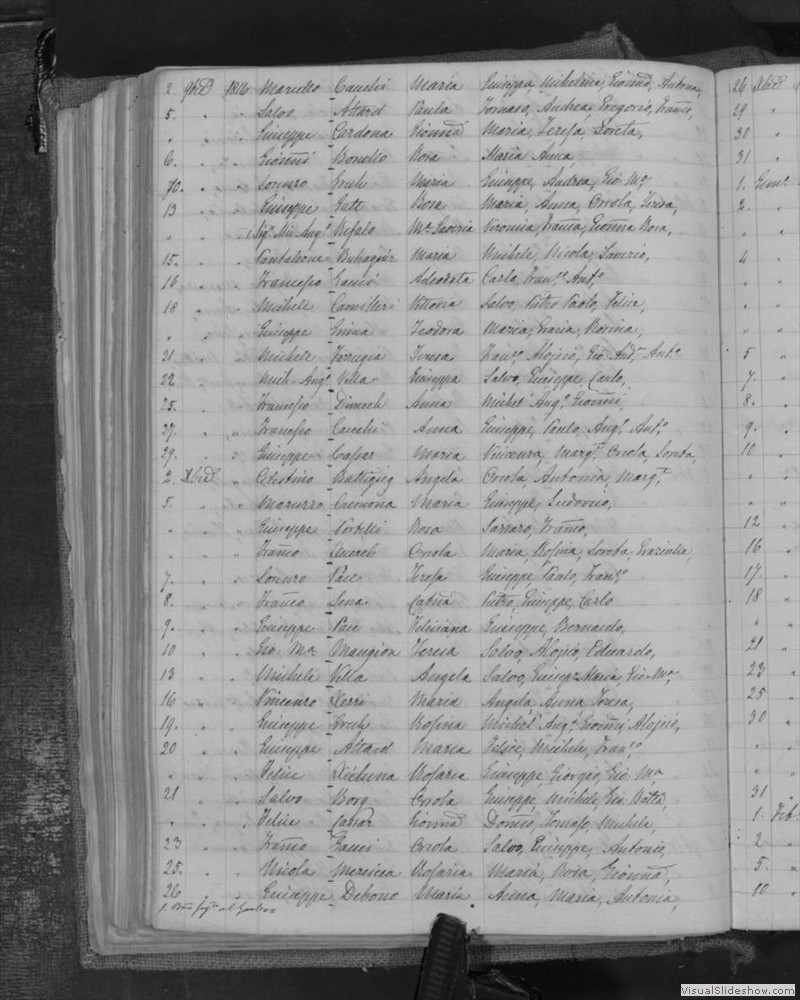 2. 9brē 1846 Marcello Cauchi Maria Giuseppa, Michelina, Gionnā, Antonia,
5. " " Salvo Attard Paula Tomaso, Andrea, Gregorio, Franco,
" " " Giuseppe Cardona Gionnā Maria, Teresa, Loreta,
6. " " Gionni Bonello Rosa Maria Anna,
10. " " Lorenzo Grech Maria Giuseppe, Andrea, Gio Mа
13 " " Giuseppe Gatt Rosa Maria, Anna, Orsola, Teresa,
" " Mich Angº Refalo Mª Saveria Veronica, Franca, Gionna Rosa,
15. " " Pantaleone Buhagiar Maria Michele, Nicola, Saverio,
16 " " Francesco Gauci Adeodata Carlo, Franº Antº
18 " " Michele Camilleri Vittoria Salvo, Pietro Paolo, Felice,
" " " Giuseppe Grima Teodora Maria, Grazia,
21 " " Michele Farrugia Teresa Franº Alojsio, Gio Andª Antº
22 " " Mich. Angº Vella Giuseppa Salvo, Giuseppe, Carlo,
25. " " Francesco Dimech Anna Michel Angº, Gionni,
27. " " Francesco Cauchi Anna Giuseppe, Paulo, Angº, Antº
29. " " Giuseppe Caspar Maria Vincenza, Margª, Orsola, Loreta,
2. Xbrē " Celestino Buttigieg Angela Orsola, Antonia, Margª.
5. " " Cremona Maria Giuseppe, Ludovico,
" " " Giuseppe Portelli Rosa Franco,
" " " Franco Orsola Maria, Rosina, Loreta, Graziella,
7. " " Lorenzo Pace Teresa Giuseppe, Paulo, Franº
8. " " Franco Sena Catnā Pietro, Giuseppe, Carlo
9. " " Giuseppe Pace Feliciana Giuseppe, Bernardo,
10 " " Gio Mª Mangion Teresa Salvo, Alojsio, Eduardo,
13 " " Michele Vella Angela Salvo, Giusepe Maria, Gio Mª,
16 " " Vincenzo Xerri Maria Angela, Anna, Teresa,
19. " " Giuseppe Grech Rosina Michel Angº, Gionni, Alojsio,
20 " " Giuseppe Attard Maria Felice, Michele, Franº
" " " Felice Xicluna Rosaria Giuseppe, Giorgio, Gio Mª
21 " " Salvo Borg Orsola Giuseppe, Michele, Gio Battā,
" " " Felice Caspar Gionnā Tomaso, Michele,
23 " " Franco Gauci Orsola Salvo, Giuseppe, Antonio,
25. " " Nicola Mercieca Rosaria Maria, Rosa, Gionnā,
26 " " Giuseppe Debono Maria Anna, Maria, Antonia,
26 Xbrē
29 "
30 "
31 "
1. Genº
2.
"
4 "
" "
" "
" "
5 "
7. "
8. "
9. "
10 "
" "
" "
12 "
16 "
17. "
18 "
" "
21 "
23 "
25 "
30 "
" "
" "
31 "
1. Feb
2 "
5. "
10 "
VisualSlideshow.com